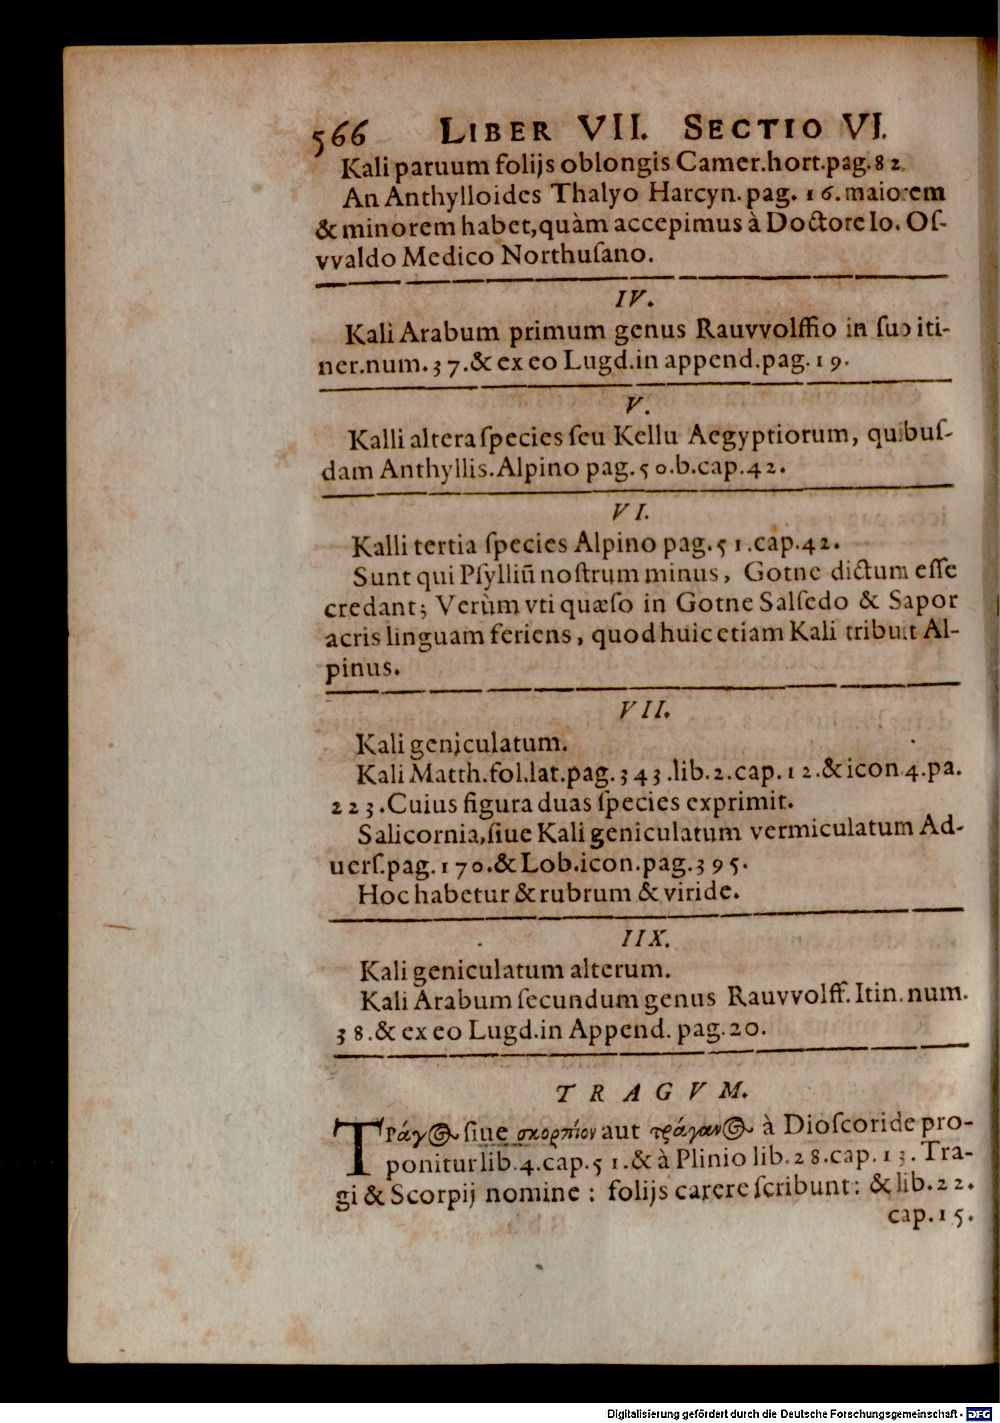 566 LIBER VII. SECTIO VI.
Kali paruum folijs oblongis Camer.hort.pag.82.
An Anthylloides Thalyo Harcyn.pag. 16.maiorem
& minorem habet,quàm accepimus à Doctore Io. Oſ-
vvaldo Medico Northuſano.
IV.
Kali Arabum primum genus Rauvvolffio in ſuo iti-
ner.num.37.& ex eo Lugd.in append.pag.19.
V.
Kalli altera ſpecies ſeu Kellu Aegyptiorum, quibuſ-
dam Anthyllis.Alpino pag.50.b.cap.42.
VI.
Kalli tertia ſpecies Alpino pag.51.cap.42.
Sunt qui Pſylliũ noſtrum minus, Gotne dictum eſſe
credant; Verùm vti quæſo in Gotne Salſedo & Sapor
acris linguam feriens, quod huic etiam Kali tribuit Al-
pinus.
VII.
Kali geniculatum.
Kali Matth.fol.lat.pag.343.lib.2.cap.12.& icon 4.pa.
223.Cuius figura duas ſpecies exprimit.
Salicornia,ſiue Kali geniculatum vermiculatum Ad-
uerſ.pag.170.& Lob.icon.pag.395.
Hoc habetur & rubrum & viride.
IIX.
Kali geniculatum alterum.
Kali Arabum ſecundum genus Rauvvolff. Itin.num.
38.& ex eo Lugd.in Append. pag.20.
TRAGVM.
Τράγος ſiue σκορπίον aut τράγανος à Dioſcoride pro-
ponitur lib.4.cap.51.& à Plinio lib.28.cap.13.Tra-
gi & Scorpij nomine : folijs carere ſcribunt: & lib.22.
cap.15.
Digitalisierung gefördert durch die Deutsche Forschungsgemeinschaft - DFG